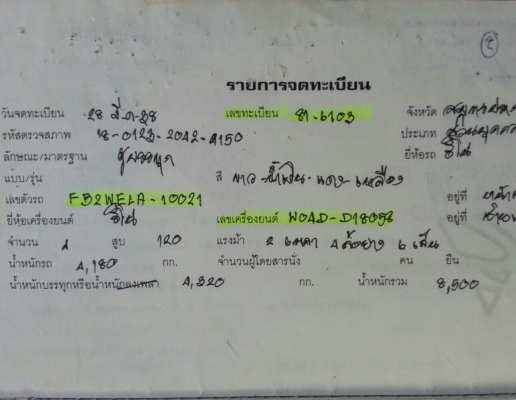 (2)
รายการจดทะเบียน
วันจดทะเบียน 28 มี.ค.38 เลขทะเบียน 81-6103 จังหวัด
รหัสตรวจสภาพ ประเภท ส่วนบุคคล
ลักษณะ/มาตรฐาน ตู้บรรทุก ยี่ห้อรถ ฮีโน่
แบบ/รุ่น สี ขาว-น้ำเงิน-แดง-เหลือง
เลขตัวรถ FB2WELA-10021 อยู่ที่
ยี่ห้อเครื่องยนต์ ฮีโน่ เลขเครื่องยนต์ W04D-D18098 อยู่ที่
จำนวน 4 สูบ 120 แรงม้า 2 เพลา 4 ล้อยาง 6 เส้น
น้ำหนักรถ 4,180 กก. จำนวนผู้โดยสารนั่ง คน ยืน
น้ำหนักบรรทุกหรือน้ำหนักลงเพลา 4,320 กก. น้ำหนักรวม 8,500